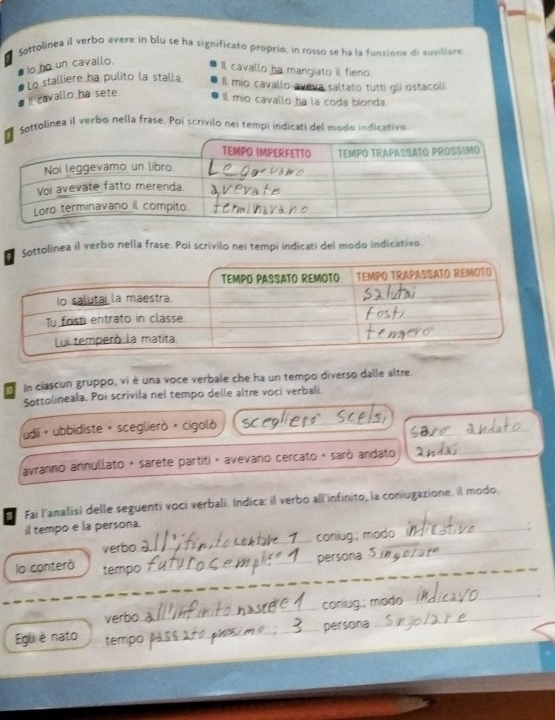 Sottolinea il verbo avere in blu se ha significato proprio, in rosso se ha la funzione di ausiliare.
Io ho un cavallo.
Lo stalliere ha pulito la stalla.
Il cavallo ha sete.
Il cavallo ha mangiato il fieno.
Il mio cavallo aveva saltato tutti gli ostacoli.
Il mio cavallo ha la coda bionda.
Sottolinea il verbo nella frase. Poi scrivilo nei tempi indicati del modo indicativo.
TEMPO IMPERFETTO TEMPO TRAPASSATO PROSSIMO
Noi leggevamo un libro. Leggevamo
Voi avevate fatto merenda. avevate
Loro terminavano il compito. terminavano
9 Sottolinea il verbo nella frase. Poi scrivilo nei tempi indicati del modo indicativo.
TEMPO PASSATO REMOTO TEMPO TRAPASSATO REMOTO
Io salutai la maestra. salutai
Tu fosti entrato in classe. fosti
Lui temperò la matita.
10 In ciascun gruppo, vi è una voce verbale che ha un tempo diverso dalle altre.
Sottolineala. Poi scrivila nel tempo delle altre voci verbali.
udii • ubbidiste • sceglierò • cigolò sceglierò scelsi
avranno annullato • sarete partiti • avevano cercato • sarò andato
saro andato
andai
11 Fai l'analisi delle seguenti voci verbali. Indica: il verbo all'infinito, la coniugazione, il modo,
il tempo e la persona.
Io conterò
verbo 1 coniug.; modo ;
tempo futuro semplice 1 persona Singolare
Egli è nato
verbo all'infinito nascere 1 coniug.; modo indicavo ;
tempo passato prosimo ; 3 persona